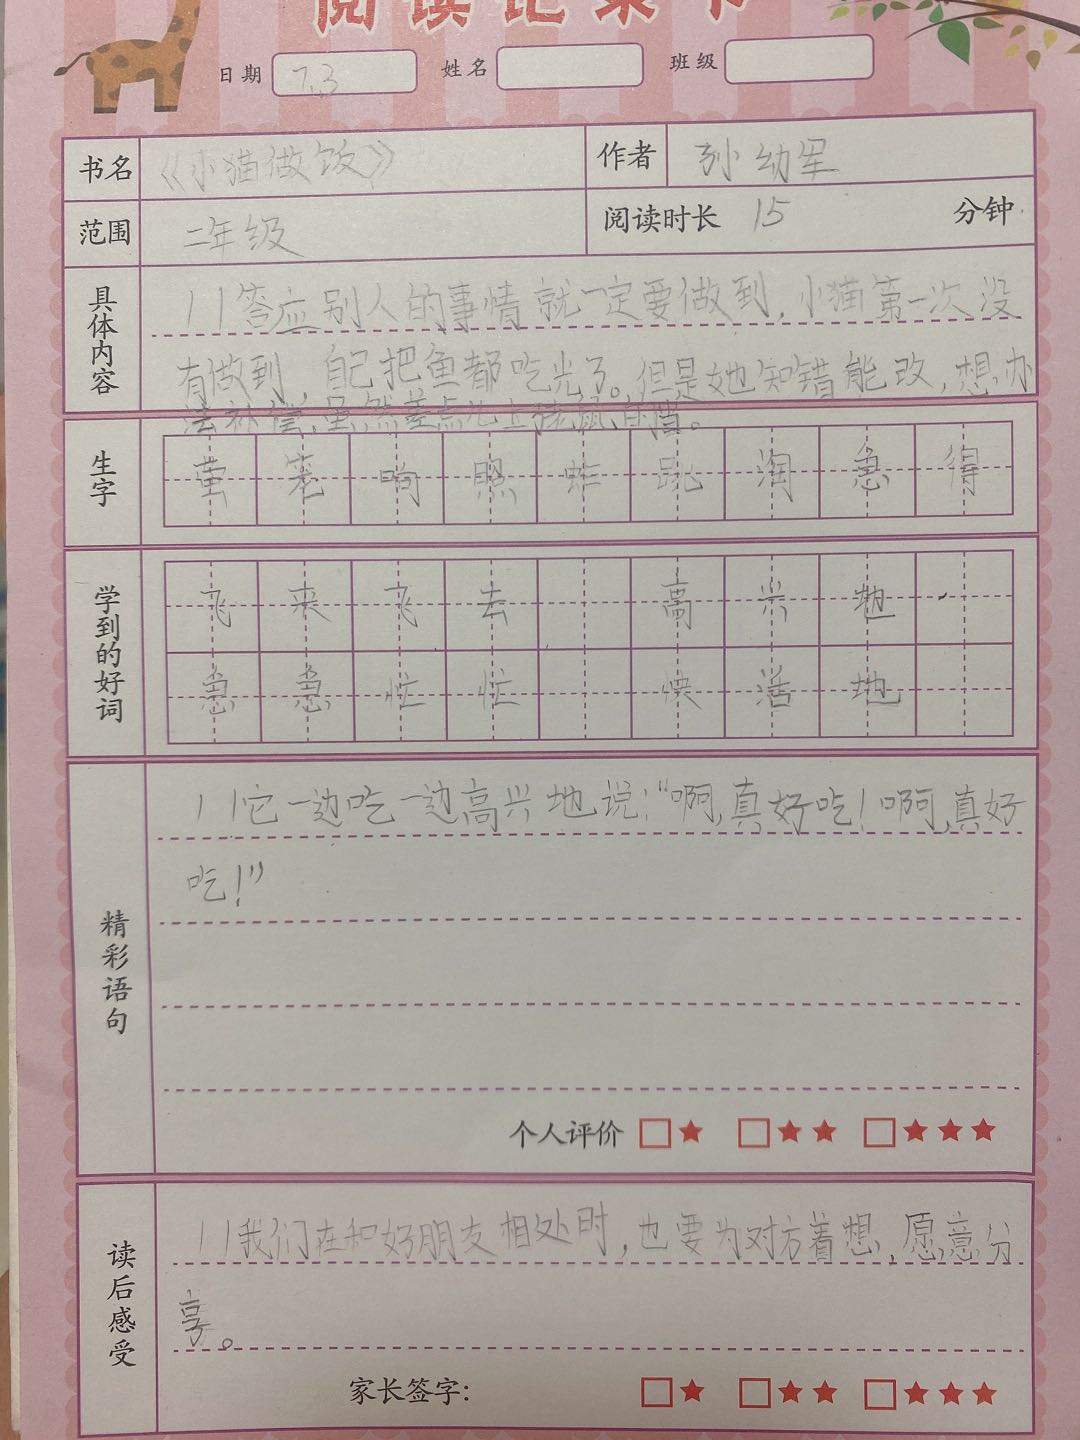 阅读记录卡
日期 7.3 姓名 班级
书名 《小猫做饭》 作者 孙幼军
范围 二年级 阅读时长 15 分钟
具体内容
答应别人的事情就一定要做到,小猫第一次没
有做到,自己把鱼都吃光了。但是她知错能改,想办
法补偿,虽然差点儿上老鼠的当。
生字
萤 笼 响 照 蚱 跳 淘 急 得
学到的好词
飞来飞去 高兴地
急急忙忙 快活地
精彩语句
它一边吃一边高兴地说:“啊,真好吃!啊,真好
吃!”
个人评价
读后感受
我们在和好朋友相处时,也要为对方着想,愿意分
享。
家长签字: